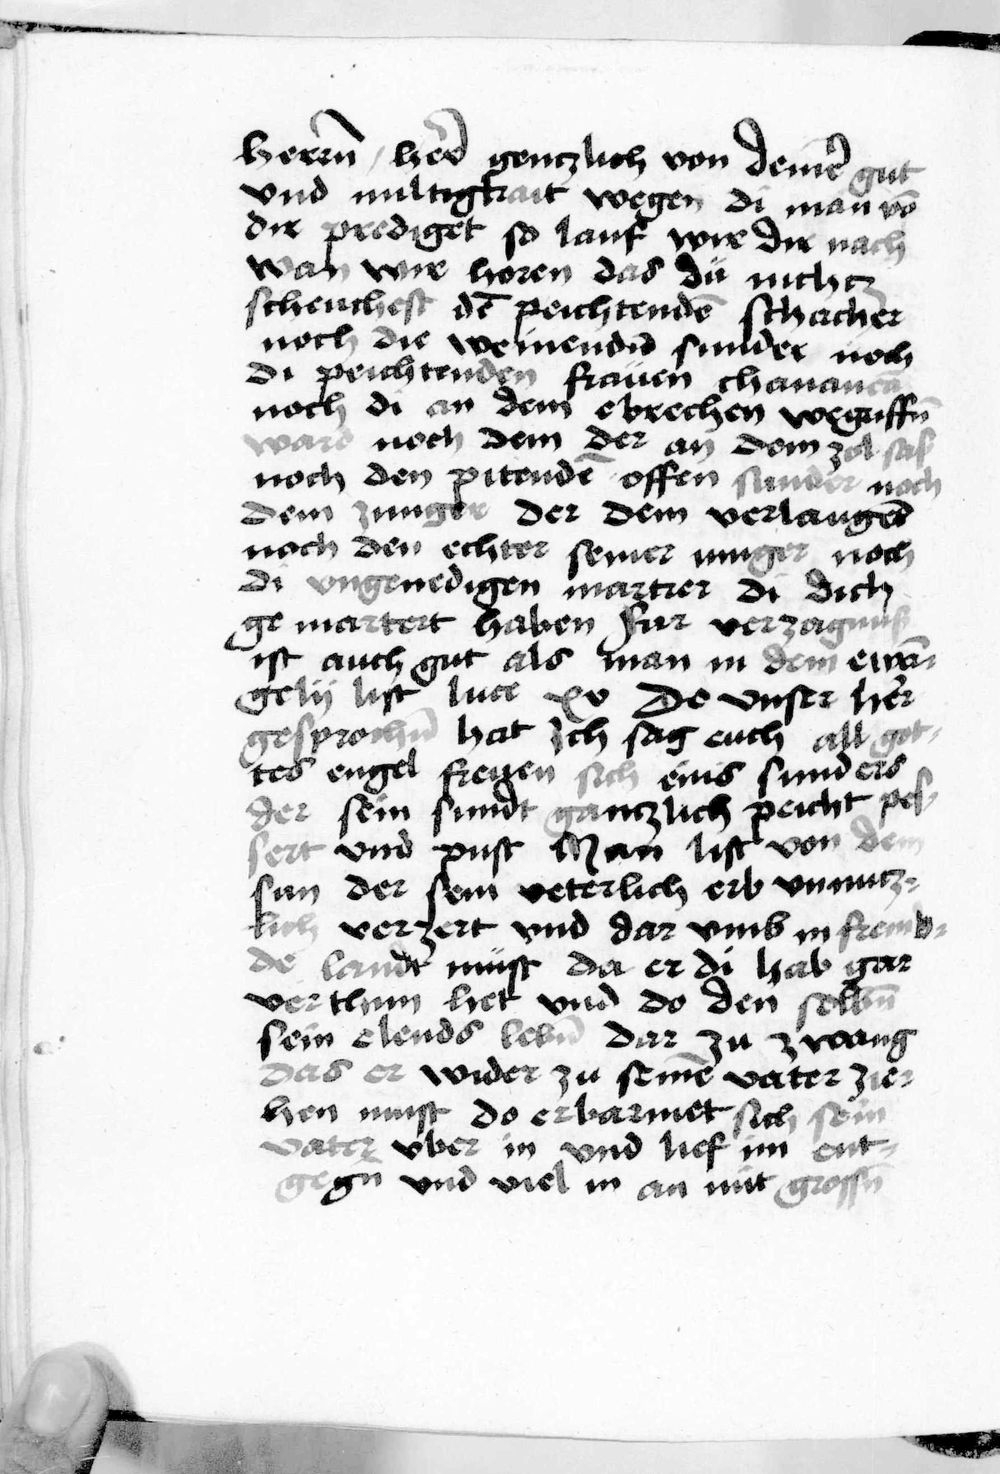 herrn̄ / her̄r gentzlich von deiner̄ gut
vnd miltigkait wegen di man vō
dir prediget so lauf wir dir nach
wan wir horen das dü nichtz
scheuchest dē peichtendē schacher
noch die weinendū sunder noch
di peichtenden frauen chananeā
noch di an dem ebrechen wegriffn̄
ward noch dem der an dem zol sas
noch den pitendē offen sunder noch
dem junger der dem verlaugēt
noch den echter seiner junger noch
di vngenedigen martrer di dich
ge martert haben Fur verzagnuß
ist auch gut als man in dem ewā-
gelij list luce xv Do vnser her̄
gesprochn̄ hat Ich sag euch all got-
tes engel freyen sich eins sunders
der sein sundt gantzlich peicht pes-
sert vnd pust Man list von dem
sun der sein veterlich erb vnnutz-
lich verzert vnd dar vmb in fremd-
de landt müst da er di hab gar
verthun het vnd do den selbn̄
sein elends lebn̄ dar zu zwang
das er wider zu seinē vater zie-
hen must do erbarmet sich sein
vater vber in vnd lief im ent-
gegn̄ vnd viel in an mit grossn̄